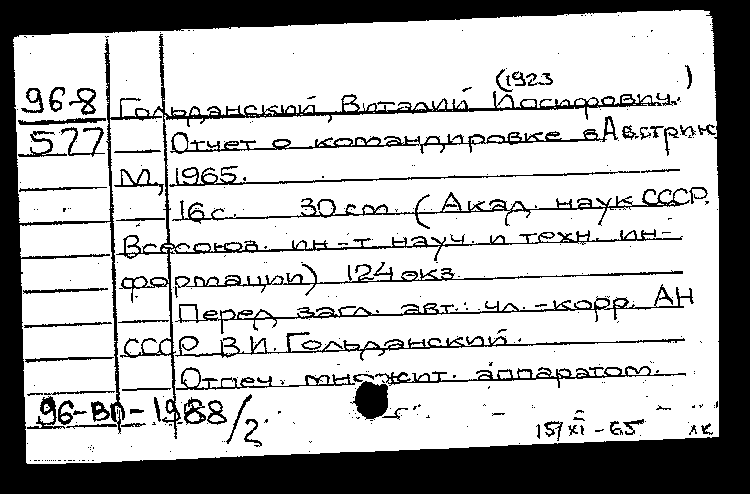 (1923 )
96-8 Гольданский, Виталий Иосифович.
577 Отчет о командировке в Австрию
М., 1965.
16 с. 30 см. (Акад. наук СССР.
Всесоюз. ин-т науч. и техн. ин-
формации) 124 экз.
Перед загл. авт.: чл.-корр. АН
СССР В.И. Гольданский.
Отпеч. множит. аппаратом.
96-ВП-1988/2
15/XI-65 лк